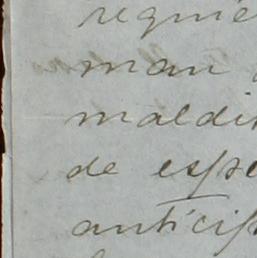 requie
man
maldi
de espe
anticip